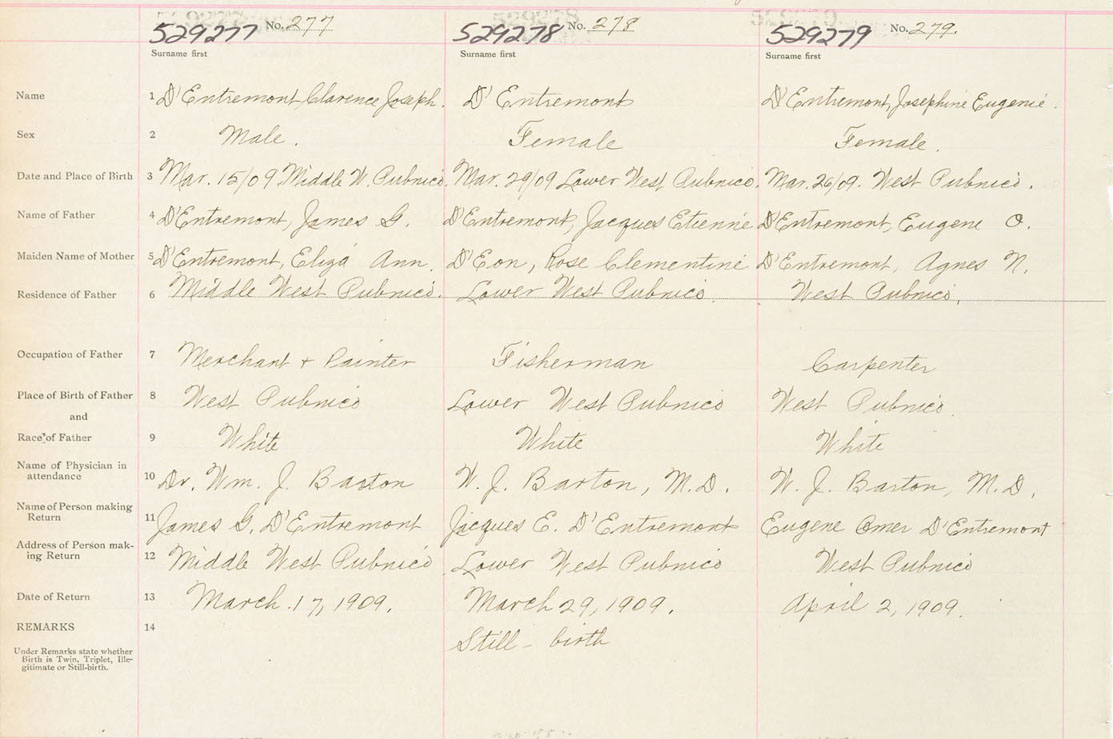 529277 No. 277 529278 No. 278 529279 No. 279
Surname first Surname first Surname first
Name 1 D'Entremont Clarence Joseph. D'Entremont D'Entremont, Josephine Eugenie.
Sex 2 Male. Female Female.
Date and Place of Birth 3 Mar. 15/09 Middle W. Pubnico. Mar. 29/09 Lower West Pubnico. Mar. 26/09. West Pubnico.
Name of Father 4 D'Entremont, James G. D'Entremont, Jacques Etienne D'Entremont, Eugene O.
Maiden Name of Mother 5 D'Entremont, Eliza Ann. D'Eon, Rose Clementine D'Entremont, Agnes N.
Residence of Father 6 Middle West Pubnico. Lower West Pubnico. West Pubnico.
Occupation of Father 7 Merchant + Painter Fisherman Carpenter
Place of Birth of Father 8 West Pubnico Lower West Pubnico West Pubnico.
and
Race of Father 9 White White White
Name of Physician in
attendance 10 Dr. Wm. J. Barton W. J. Barton, M.D. W. J. Barton, M.D.
Name of Person making
Return 11 James G. D'Entremont Jacques E. D'Entremont Eugene Omer D'Entremont
Address of Person mak-
ing Return 12 Middle West Pubnico Lower West Pubnico West Pubnico
Date of Return 13 March 17, 1909. March 29, 1909. April 2, 1909.
REMARKS 14 Still-birth
Under Remarks state whether
Birth is Twin, Triplet, Ille-
gitimate or Still-birth.